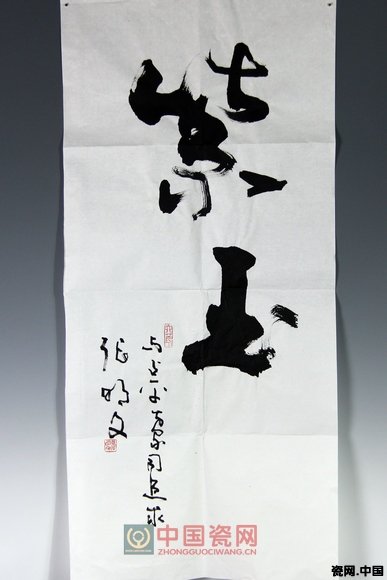 紫玉
与同追求
张明文
中国瓷网
ZHONGGUOCIWANG.CN
瓷网.中国